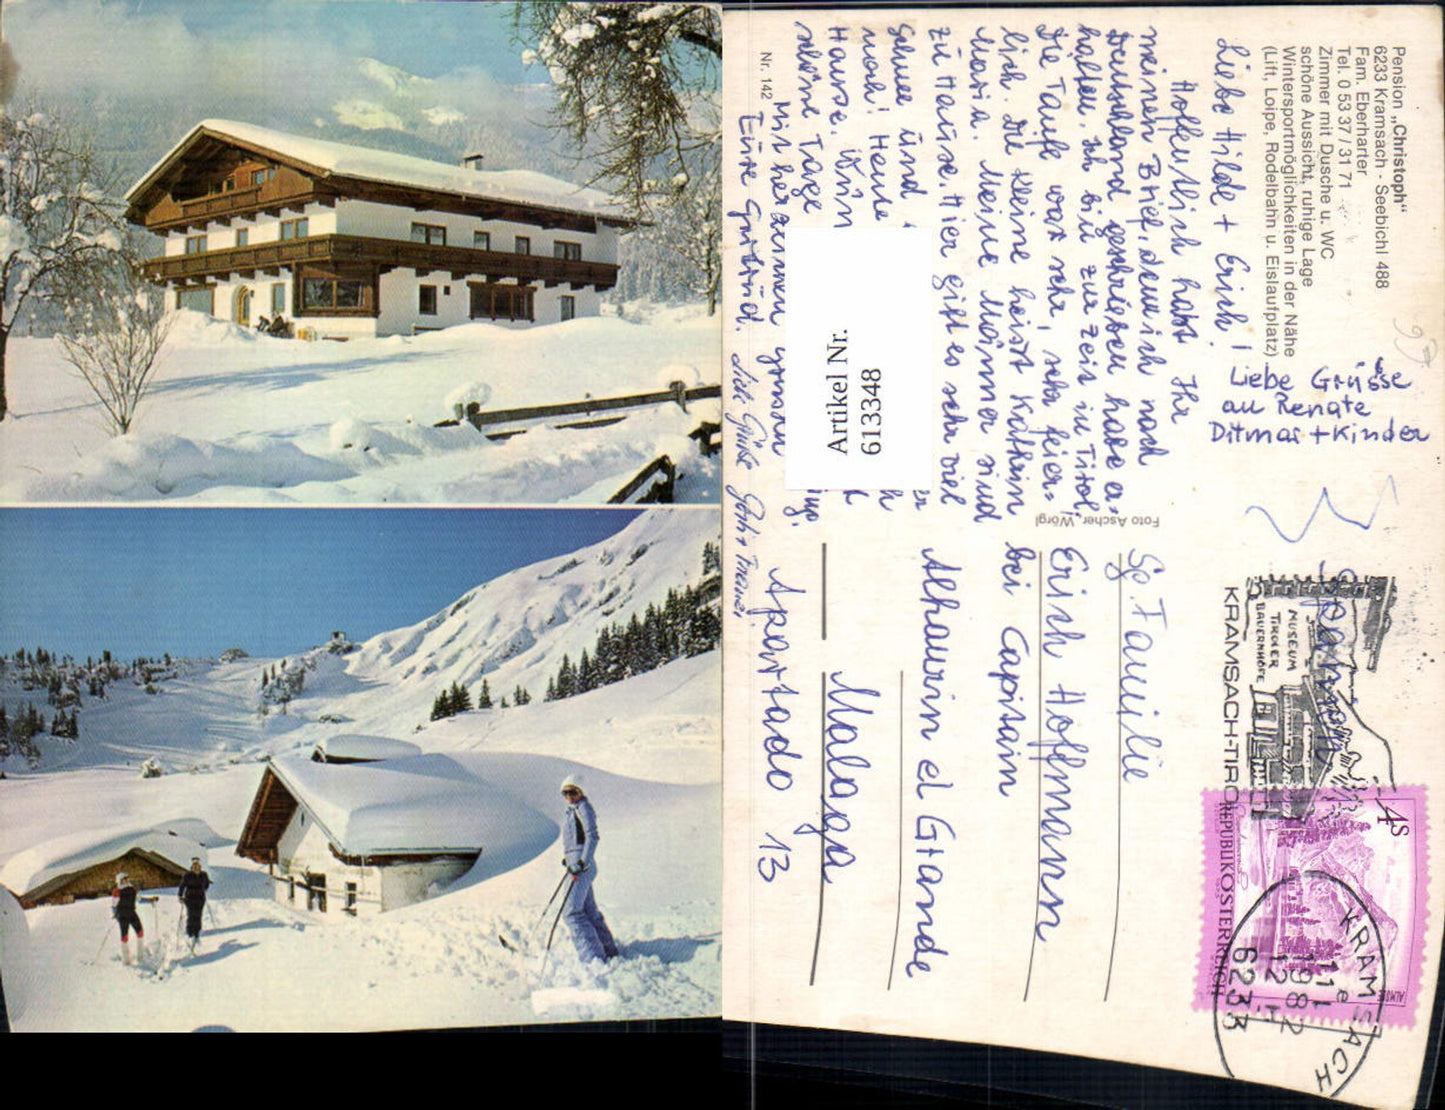 Pension „Christoph“
6233 Kramsach - Seebichl 488
Fam. Eberharter
Tel. 0 53 37 / 31 71
Zimmer mit Dusche u. WC
schöne Aussicht, ruhige Lage
Wintersportmöglichkeiten in der Nähe
(Lift, Loipe, Rodelbahn u. Eislaufplatz)
Liebe Hilde + Erich!
Hoffentlich habt Ihr
meinen Brief, dem ich nach
Deutschland geschrieben habe er=
halten. Ich bin zur Zeit in Tirol,
Die Taufe war sehr, sehr feier=
lich. Die kleine heisst Kathrin
Maria. Meine Männer sind
zu Hause. Hier gibt es sehr viel
Schnee und
noch! Heute
Hause. Wün
schöne Tage
Mit her
Eure Gertrud.
Nr. 142
Artikel Nr.
613348
Liebe Grüsse
an Renate
Ditmar + Kinder
Foto Ascher, Wörgl
Sg. Familie
Erich Hoffmann
bei Capitain
Alhaurin el Grande
Malaga
Apartado 13
Spanien
MUSEUM
TIROLER
BAUERNHÖFE
KRAMSACH-TIROL
4S
REPUBLIK ÖSTERREICH
KRAMSACH
11.1
1982
12 H
6233
e